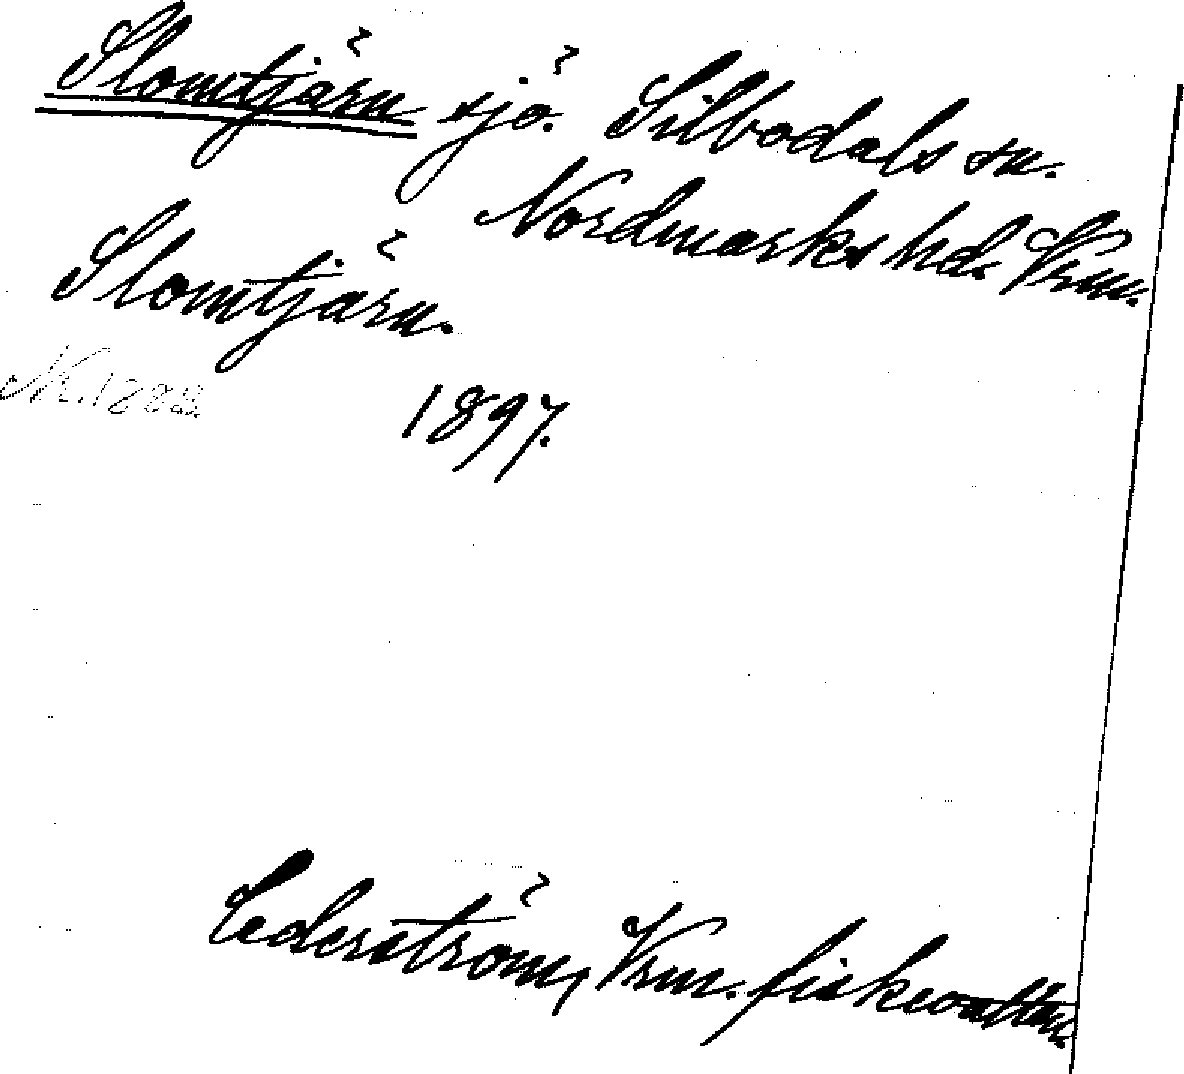 Slomtjärn sjö. Silbodals sn.
Nordmarks hd. Vrm.
Slomtjärn.
1897.
Cederström, Vrm. fiskevatten.